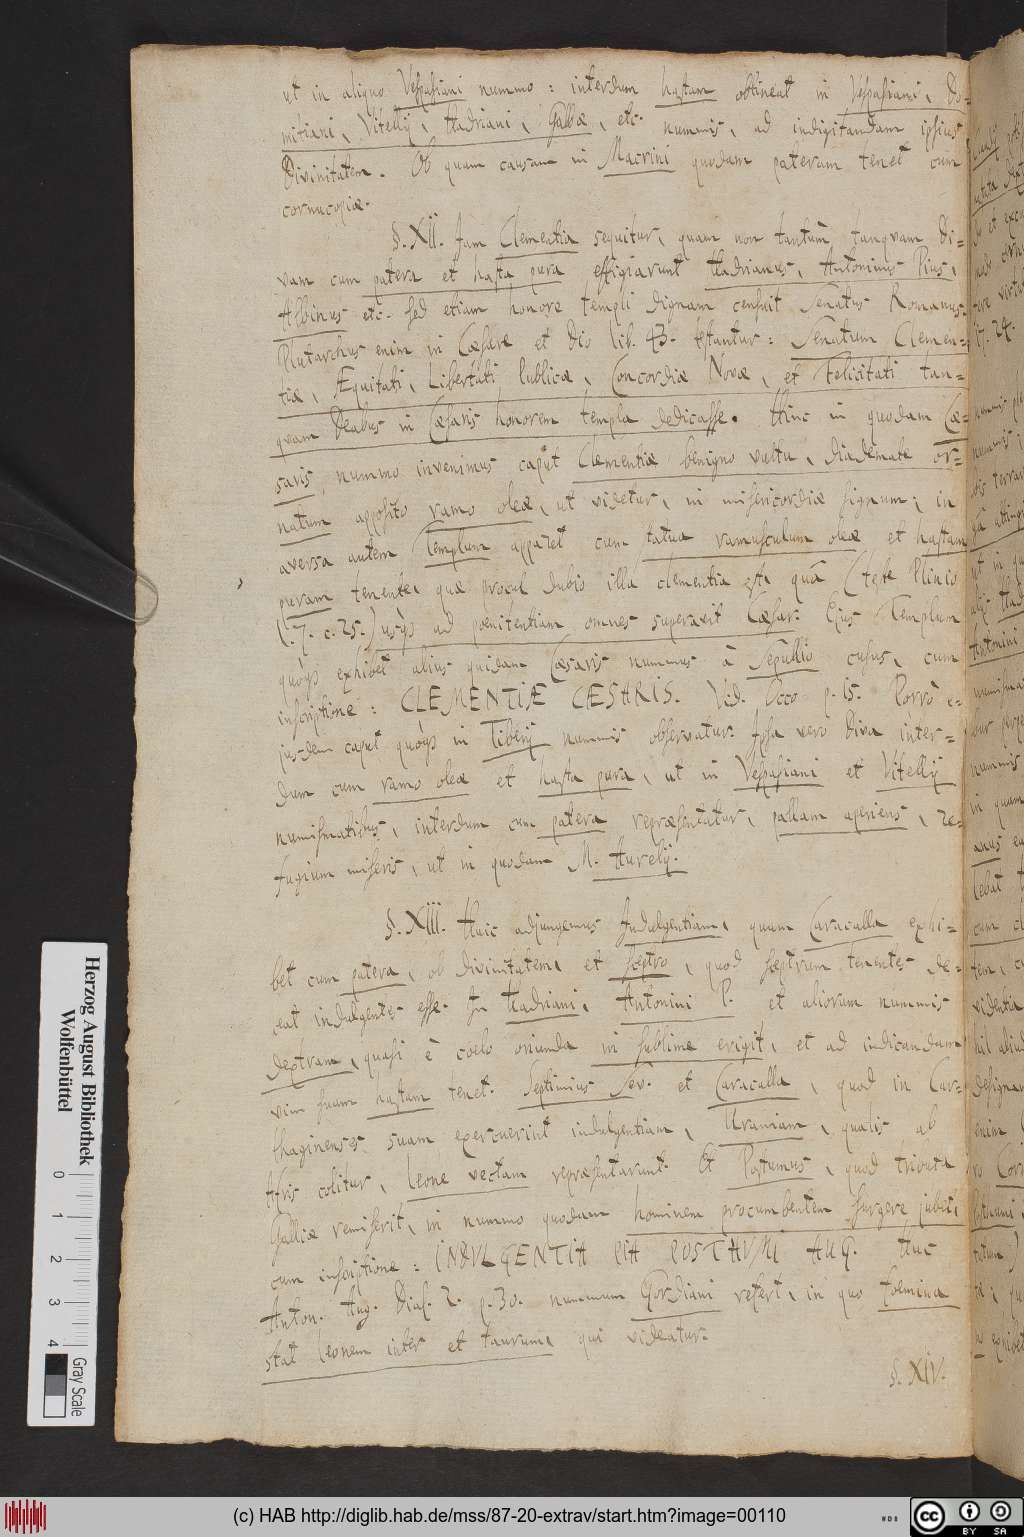 ut in aliquo Vespasiani nummo : interdum hastam obtineat in Vespasiani, Do=
mitiani, Vitellij, Hadriani, Galbæ, etc. nummis, ad indigitandam ipsius
Divinitatem. Ob quam causam in Macrini quodam pateram tenet cum
cornucopiæ.
§. XII. Jam Clementia sequitur, quam non tantùm tanquam Di=
vam cum patera et hasta pura effigiarunt Hadrianus, Antoninus Pius,
Albinus etc. sed etiam honore templi dignam censuit Senatus Romanus.
Plutarchus enim in Cæsare et Dio lib. 43. testantur : Senatum Clemen=
tiæ, Æquitati, Libertati Publicæ, Concordiæ Novæ, et Felicitati tan=
quam Deabus in Cæsaris honorem templa dedicasse. Hinc in quodam Cæ=
saris nummo invenimus caput Clementiæ benigno vultu, diademate or=
natum apposito ramo oleæ, ut videtur, in misericordiæ signum; in
aversa autem Templum apparet cum statua ramusculum oleæ et hastam
puram tenente, quæ procul dubio illa clementia est, quâ (teste Plinio
l. 7. c. 25.) usq3 ad poenitentiam omnes superavit Cæsar. Ejus Templum
quoq3 exhibet alius quidam Cæsaris nummus à Sepullio cusus, cum
inscriptione : CLEMENTIÆ CÆSARIS. Vid. Occo p. 15. Porrò e=
jusdem caput quoq3 in Tiberij nummis observatur. Ipsa vero Diva inter=
dum cum ramo oleæ et hasta pura, ut in Vespasiani et Vitellij
numismatibus, interdum cum patera repræsentatur, pallam aperiens, re=
fugium miseris, ut in quodam M. Aurelij.
§. XIII. Huic adjungemus Indulgentiam, quam Caracalla exhi=
bet cum patera, ob divinitatem, et sceptro, quod sceptrum tenentes de=
ceat indulgentes esse. In Hadriani, Antonini P. et aliorum nummis
dextram, quasi è coelo oriunda in sublime erigit, et ad indicandam
vim suam hastam tenet. Septimius Sev. et Caracalla, quod in Car=
thaginenses suam exercuerint indulgentiam, Uraniam, qualis ab
Afris colitur, leone vectam repræsentarunt. Et Postumus, quod tributa
Galliæ remiserit, in nummo quodam hominem procumbentem surgere jubet,
cum inscriptione : INDULGENTIA PIA POSTHUMI AUG. Huc
Anton. Aug. Dial. 2. p. 30. nummum Gordiani refert, in quo foemina
stat leonem inter et taurum, qui videatur.
§. XIV.
Herzog August Bibliothek
Wolfenbüttel
0 1 2 3 4
Gray Scale
(c) HAB http://diglib.hab.de/mss/87-20-extrav/start.htm?image=00110
WDB
cc BY SA